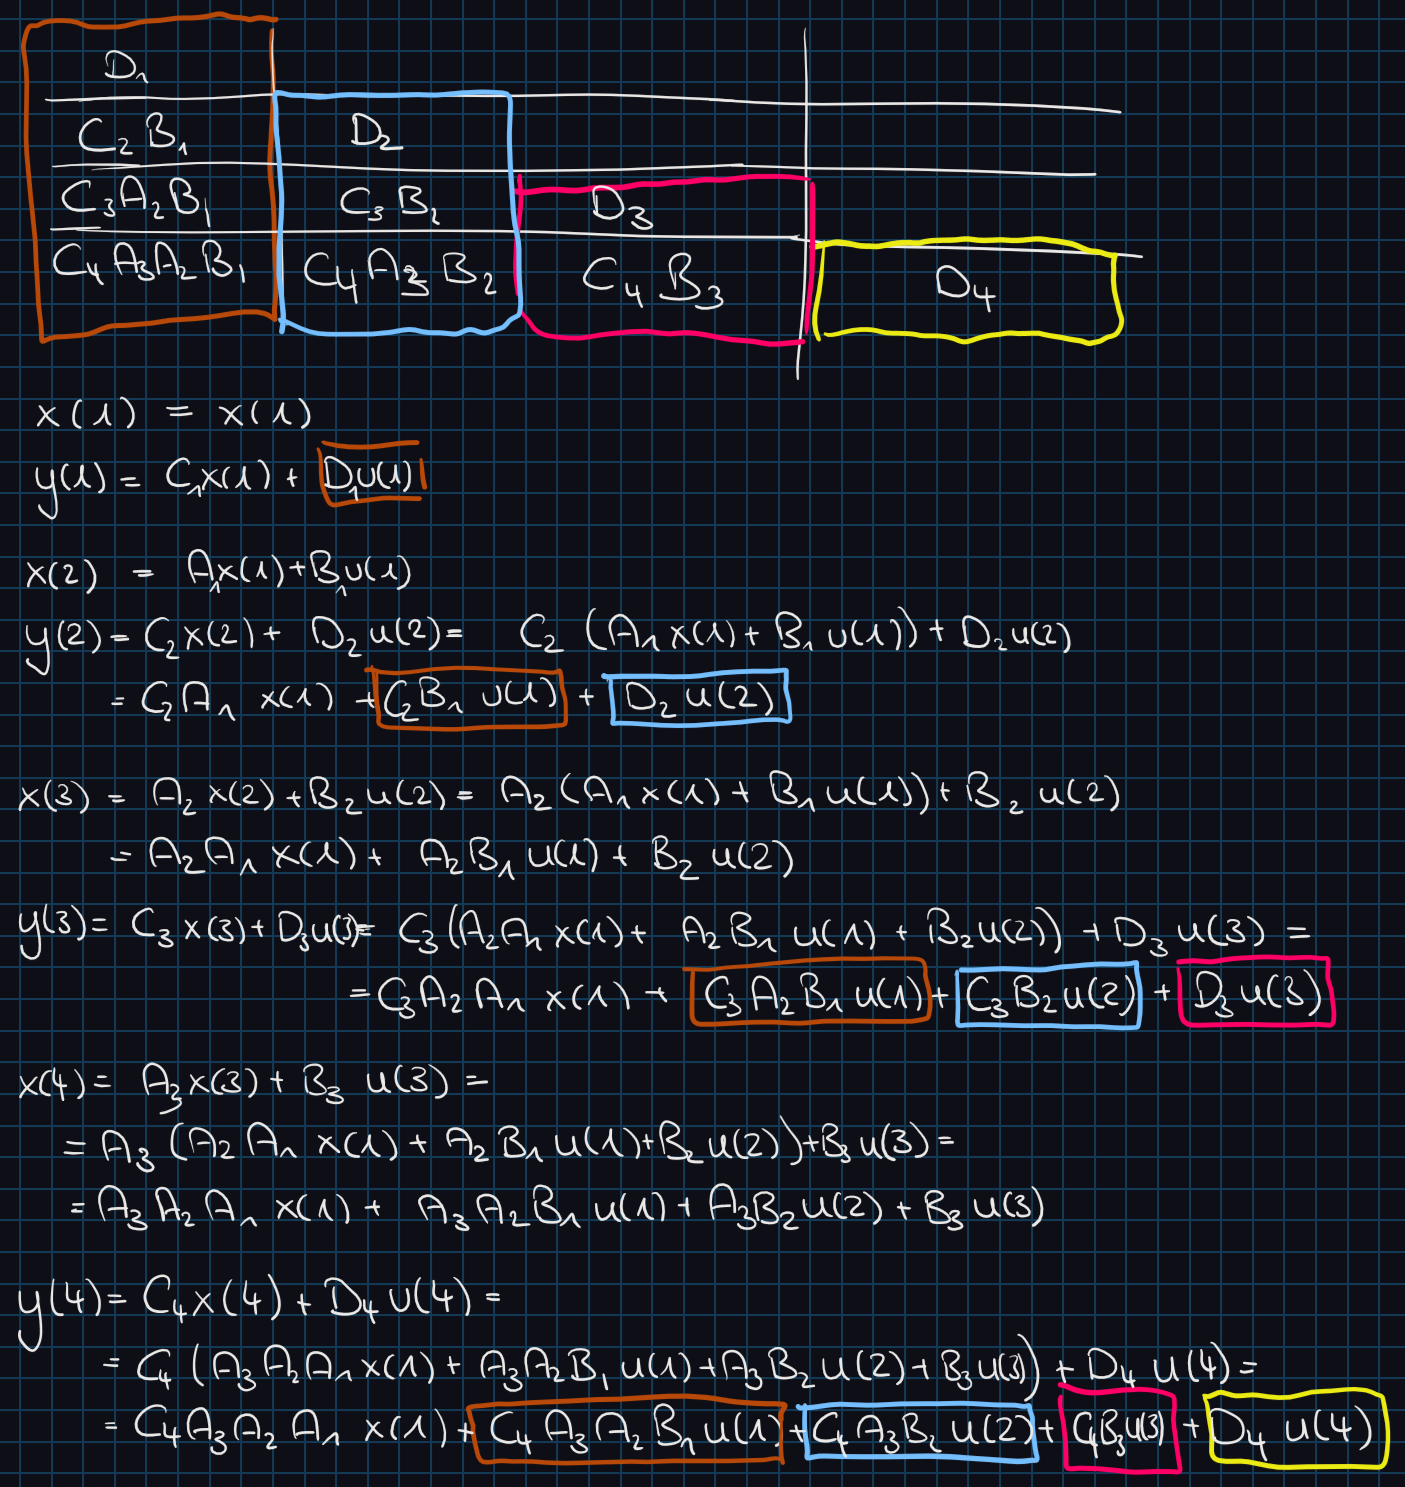 D₁
C₂B₁ D₂
C₃A₂B₁ C₃B₂ D₃
C₄A₃A₂B₁ C₄A₃B₂ C₄B₃ D₄
x(1) = x(1)
y(1) = C₁x(1) + D₁u(1)
x(2) = A₁x(1)+B₁u(1)
y(2) = C₂x(2) + D₂u(2) = C₂(A₁x(1) + B₁u(1)) + D₂u(2)
= C₂A₁ x(1) + C₂B₁ u(1) + D₂u(2)
x(3) = A₂x(2) + B₂u(2) = A₂(A₁x(1) + B₁u(1)) + B₂u(2)
= A₂A₁x(1) + A₂B₁u(1) + B₂u(2)
y(3) = C₃x(3) + D₃u(3) = C₃(A₂A₁x(1) + A₂B₁u(1) + B₂u(2)) + D₃u(3) =
= C₃A₂A₁ x(1) + C₃A₂B₁u(1) + C₃B₂u(2) + D₃u(3)
x(4) = A₃x(3) + B₃u(3) =
= A₃(A₂A₁ x(1) + A₂B₁u(1) + B₂u(2)) + B₃u(3) =
= A₃A₂A₁ x(1) + A₃A₂B₁u(1) + A₃B₂u(2) + B₃u(3)
y(4) = C₄x(4) + D₄u(4) =
= C₄(A₃A₂A₁x(1) + A₃A₂B₁u(1) + A₃B₂u(2) + B₃u(3)) + D₄u(4) =
= C₄A₃A₂A₁ x(1) + C₄A₃A₂B₁u(1) + C₄A₃B₂u(2) + C₄B₃u(3) + D₄u(4)